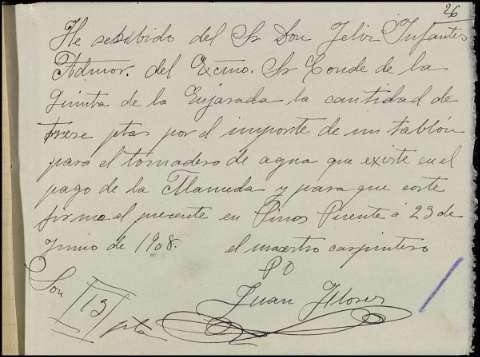 26
He resibido del Sr Don Felix Infantes
Admor. del Excmo. Sr Conde de la
Quinta de la Enjarada la cantidad de
trese ptas por el importe de un tablon
para el tomadero de agua que existe en el
pago de la Alameda y para que coste
firmo el presente en Pinos Puente á 23 de
Junio de 1908. el maestro carpintero
PO
Son 13 ptas Juan Flores